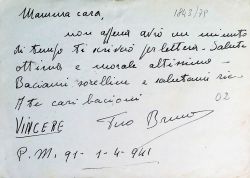 Mamma cara, 1843/78
non appena avrò un minuto
di tempo ti scriverò per lettera - Salute
ottima e morale altissimo -
Baciami sorelline e salutami
A te cari bacioni 02
VINCERE Tuo Bruno
P.M. 91 - 1-4-941